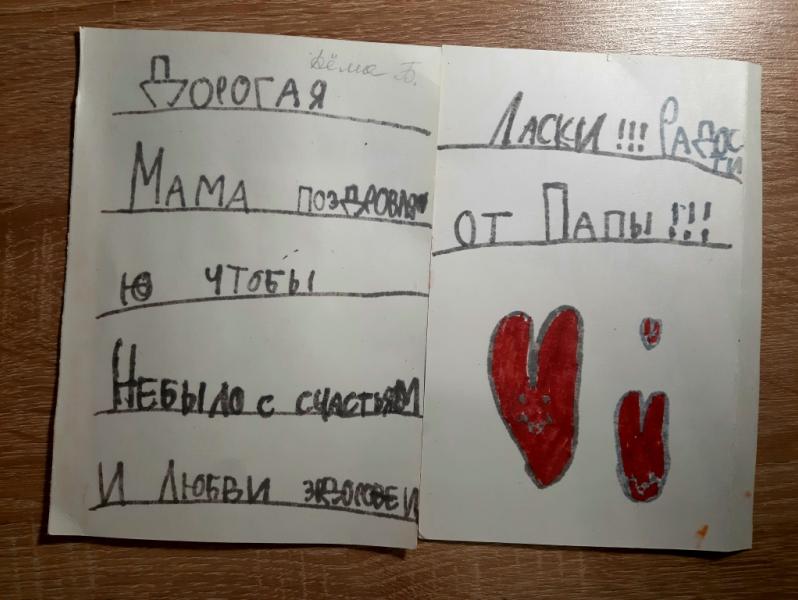 Дёма Б.
Дорогая
Мама поздровля
ю чтобы
Небыло с счастьям
и любви здоровеи
Ласки!!! Радос
ти
от Папы!!!